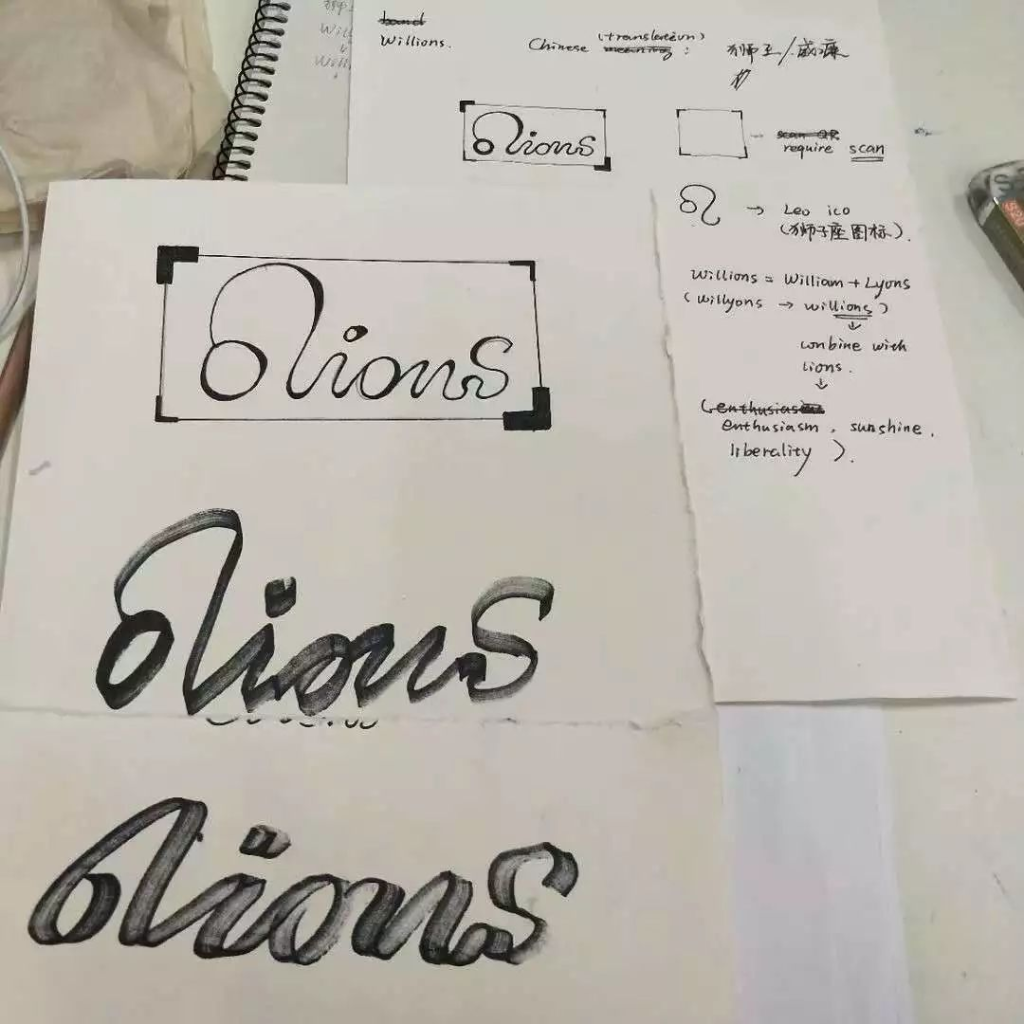 Willions.
Chinese (translation) : 狮王/威廉
lions
require scan
→ Leo ico
(狮子座图标).
Willions = William + Lyons
(Willyons → willions)
combine with
lions.
enthusiasm, sunshine,
liberality ).
lions
lions
lions